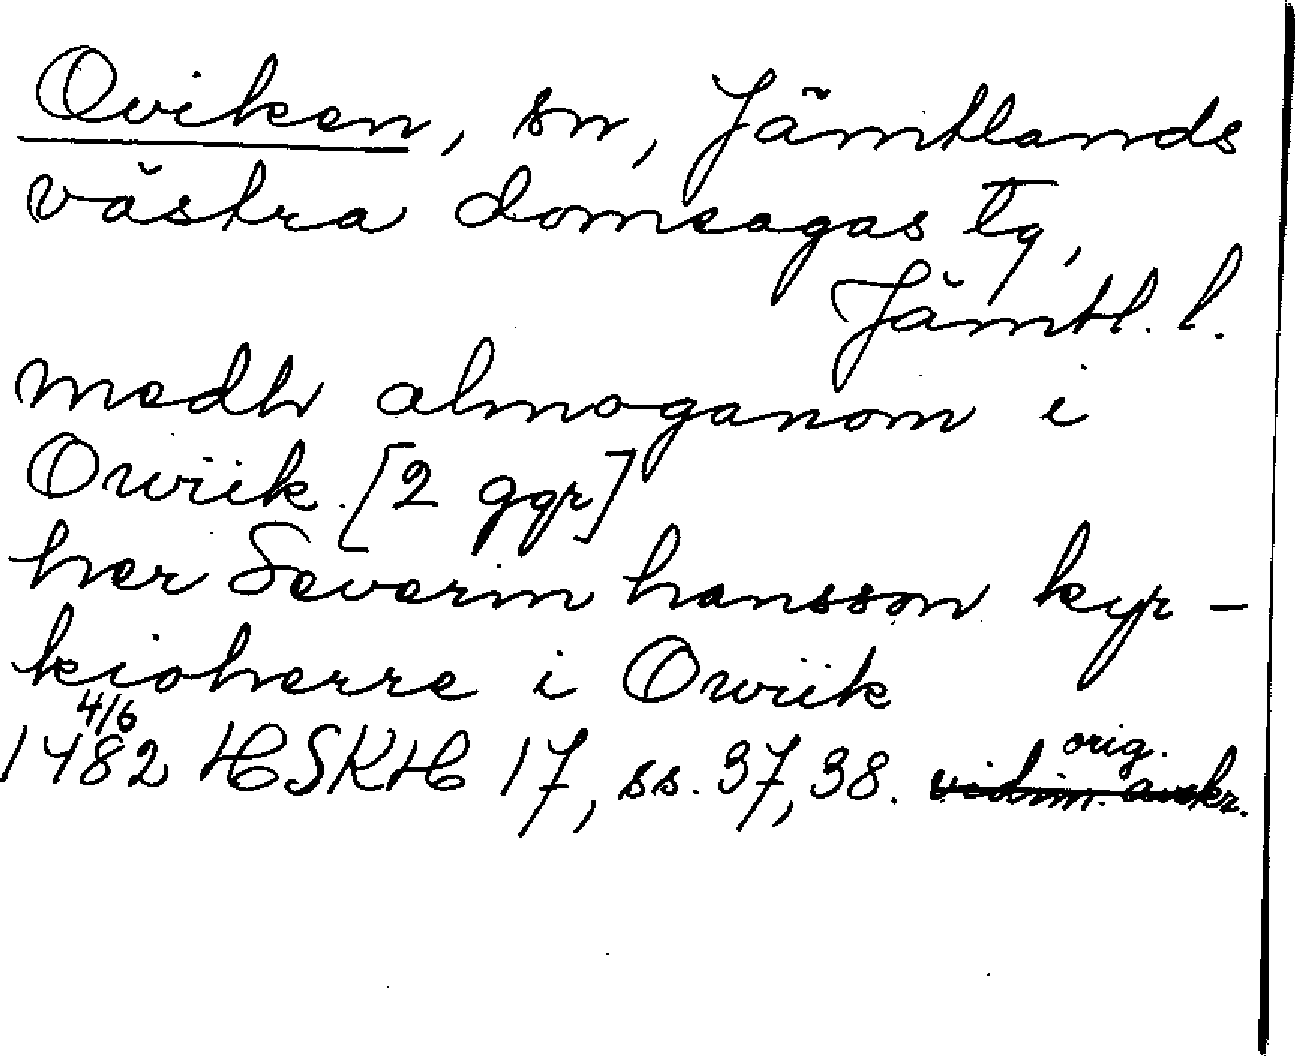 Oviken, sn, Jämtlands
västra domsagas tg,
Jämtl. l.
medh almoganom i
Owiik [2 ggr]
her Severin hansson kyr-
kioherre i Owiik
4/6
1482 HSKH 17, ss. 37, 38. orig.
vidim. avskr.